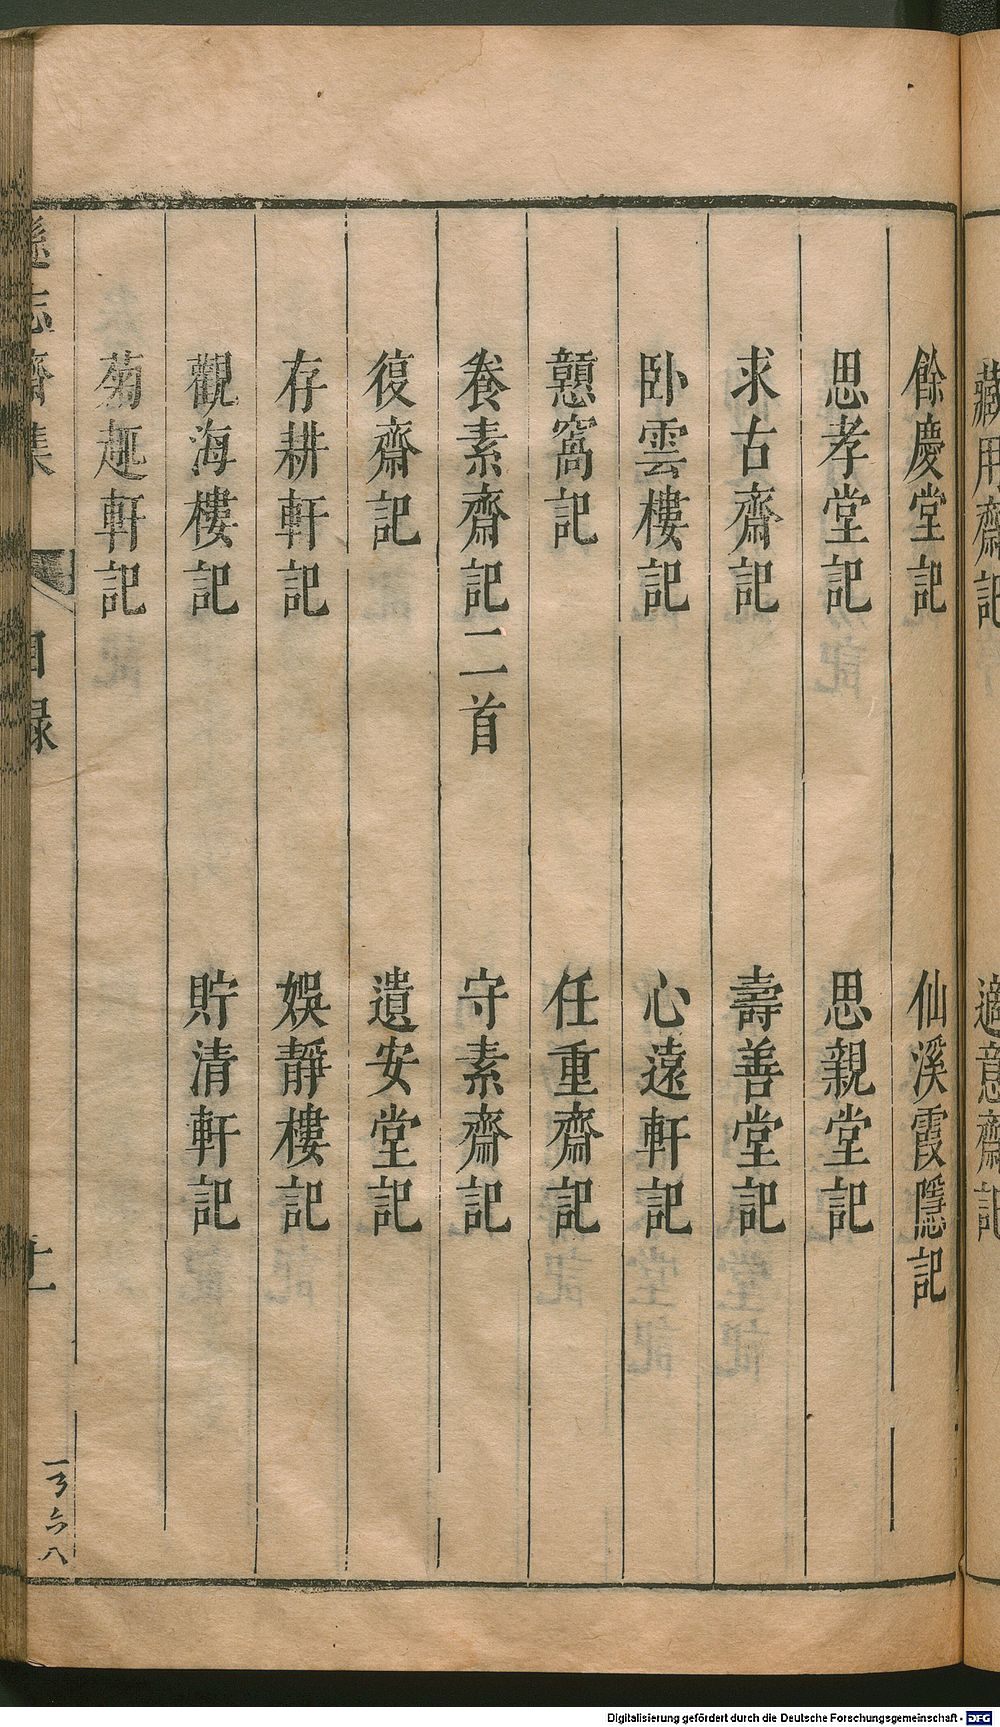 藏用齋記
適意齋記
餘慶堂記
仙溪霞隱記
思孝堂記
思親堂記
求古齋記
壽善堂記
卧雲樓記
心遠軒記
戇窩記
任重齋記
養素齋記二首
守素齋記
復齋記
遺安堂記
存耕軒記
娛靜樓記
觀海樓記
貯清軒記
菊趣軒記
遜志齋集
目録
Digitalisierung gefördert durch die Deutsche Forschungsgemeinschaft - DFG